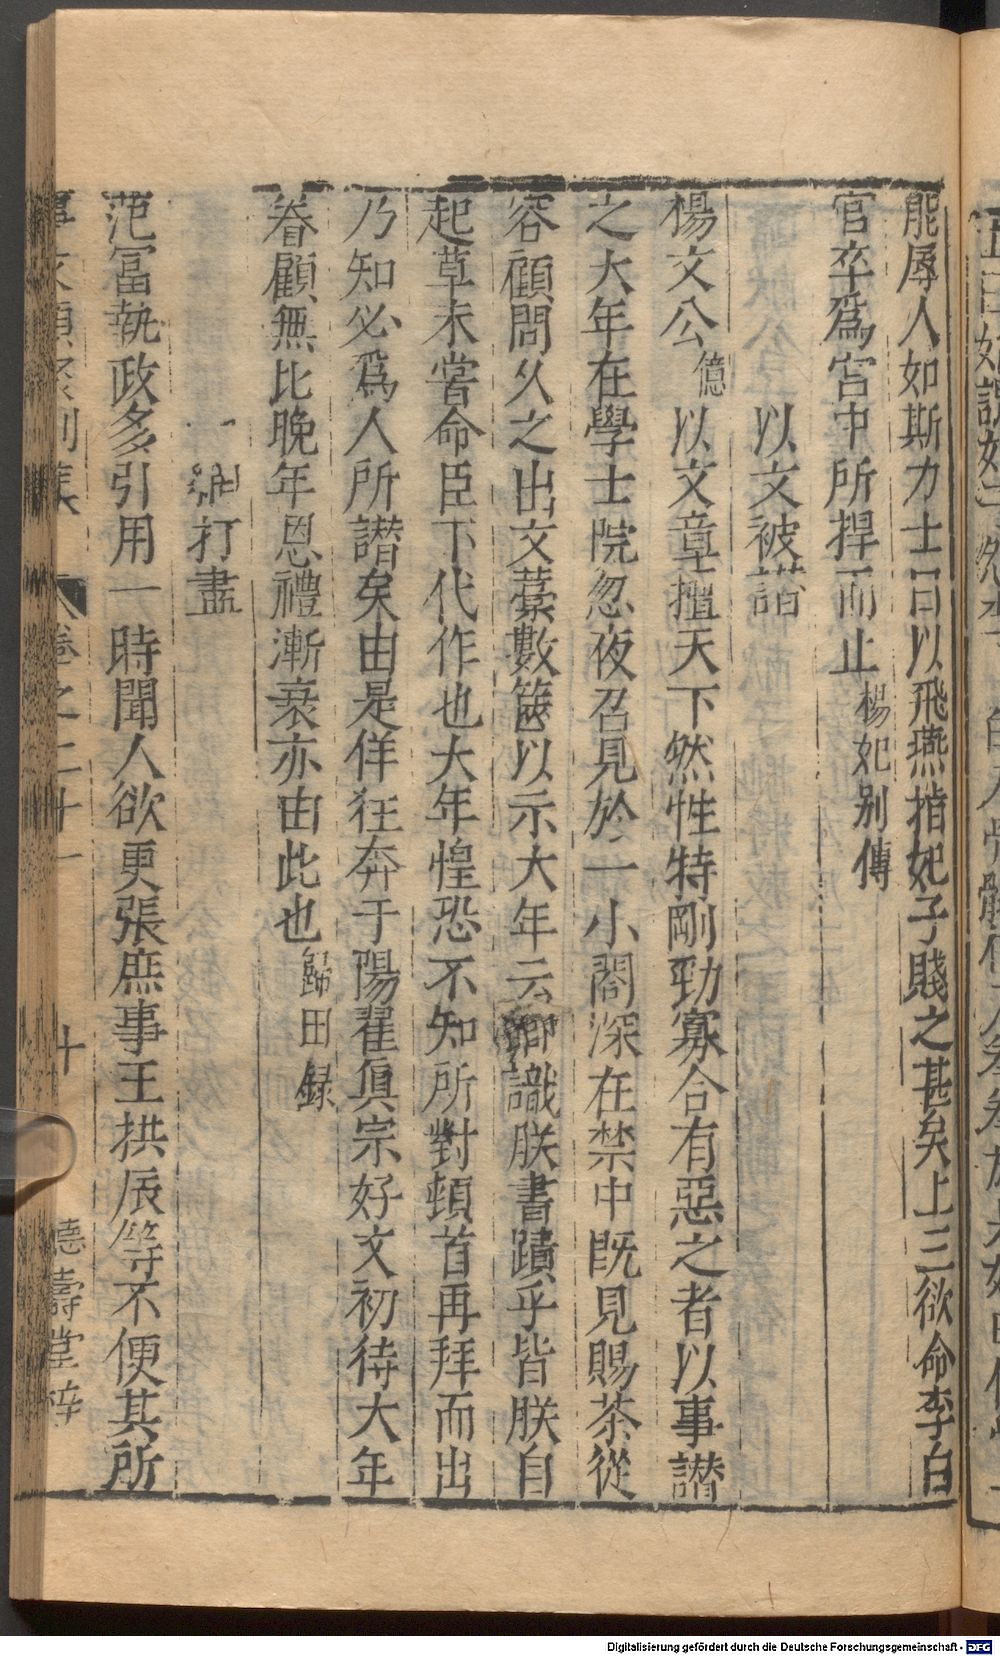 能辱人如斯力士曰以飛燕指妃子賤之甚矣上三欲命李白
官卒爲宮中所捍而止楊妃別傳
以文被譖
楊文公億以文章擅天下然性特剛勁寡合有惡之者以事譖
之大年在學士院忽夜召見於一小閤深在禁中既見賜茶從
容顧問久之出文藁數篋以示大年云卿識朕書蹟乎皆朕自
起草未嘗命臣下代作也大年惶恐不知所對頓首再拜而出
乃知必爲人所譖矣由是佯狂奔于陽翟眞宗好文初待大年
眷顧無比晚年恩禮漸衰亦由此也歸田録
一網打盡
范富執政多引用一時聞人欲更張庶事王拱辰等不便其所
事文類聚別集 卷之二十 十 德壽堂梓
Digitalisierung gefördert durch die Deutsche Forschungsgemeinschaft - DFG